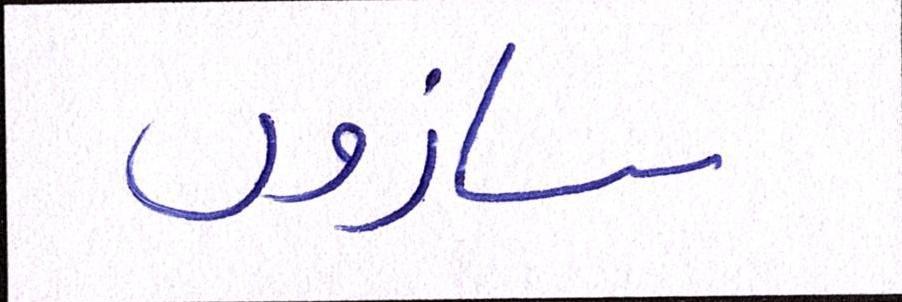 سازوں